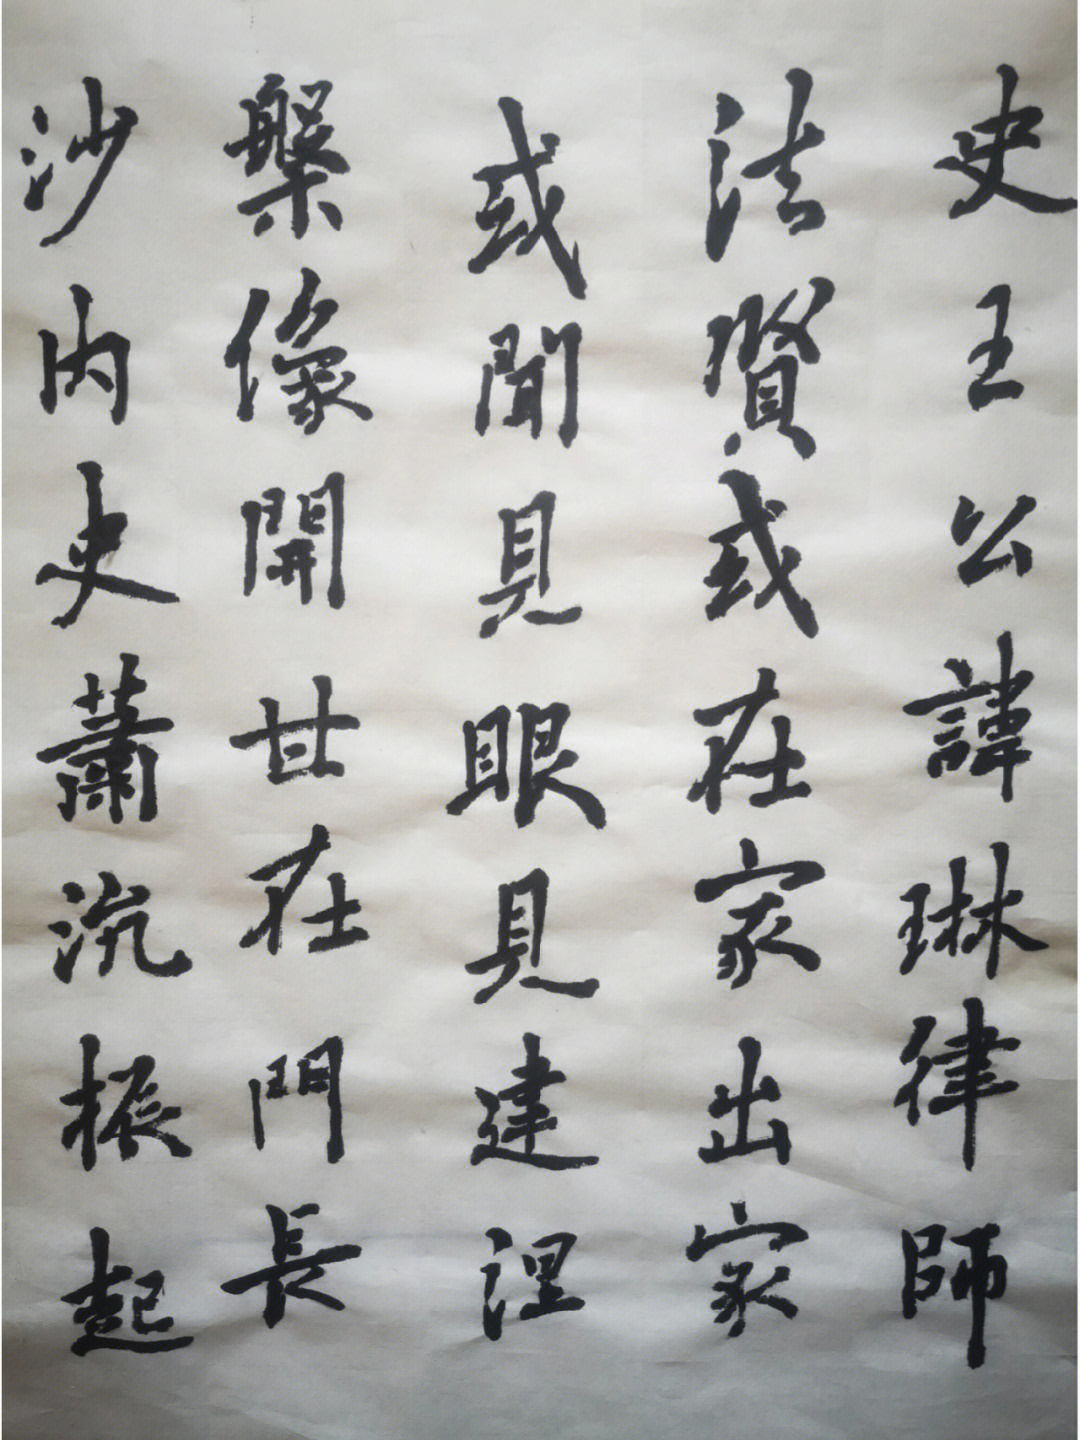 史王公諱琳律師
法賢或在家出家
或聞見眼見建涅
槃像開廿在門長
沙内史蕭沆振起